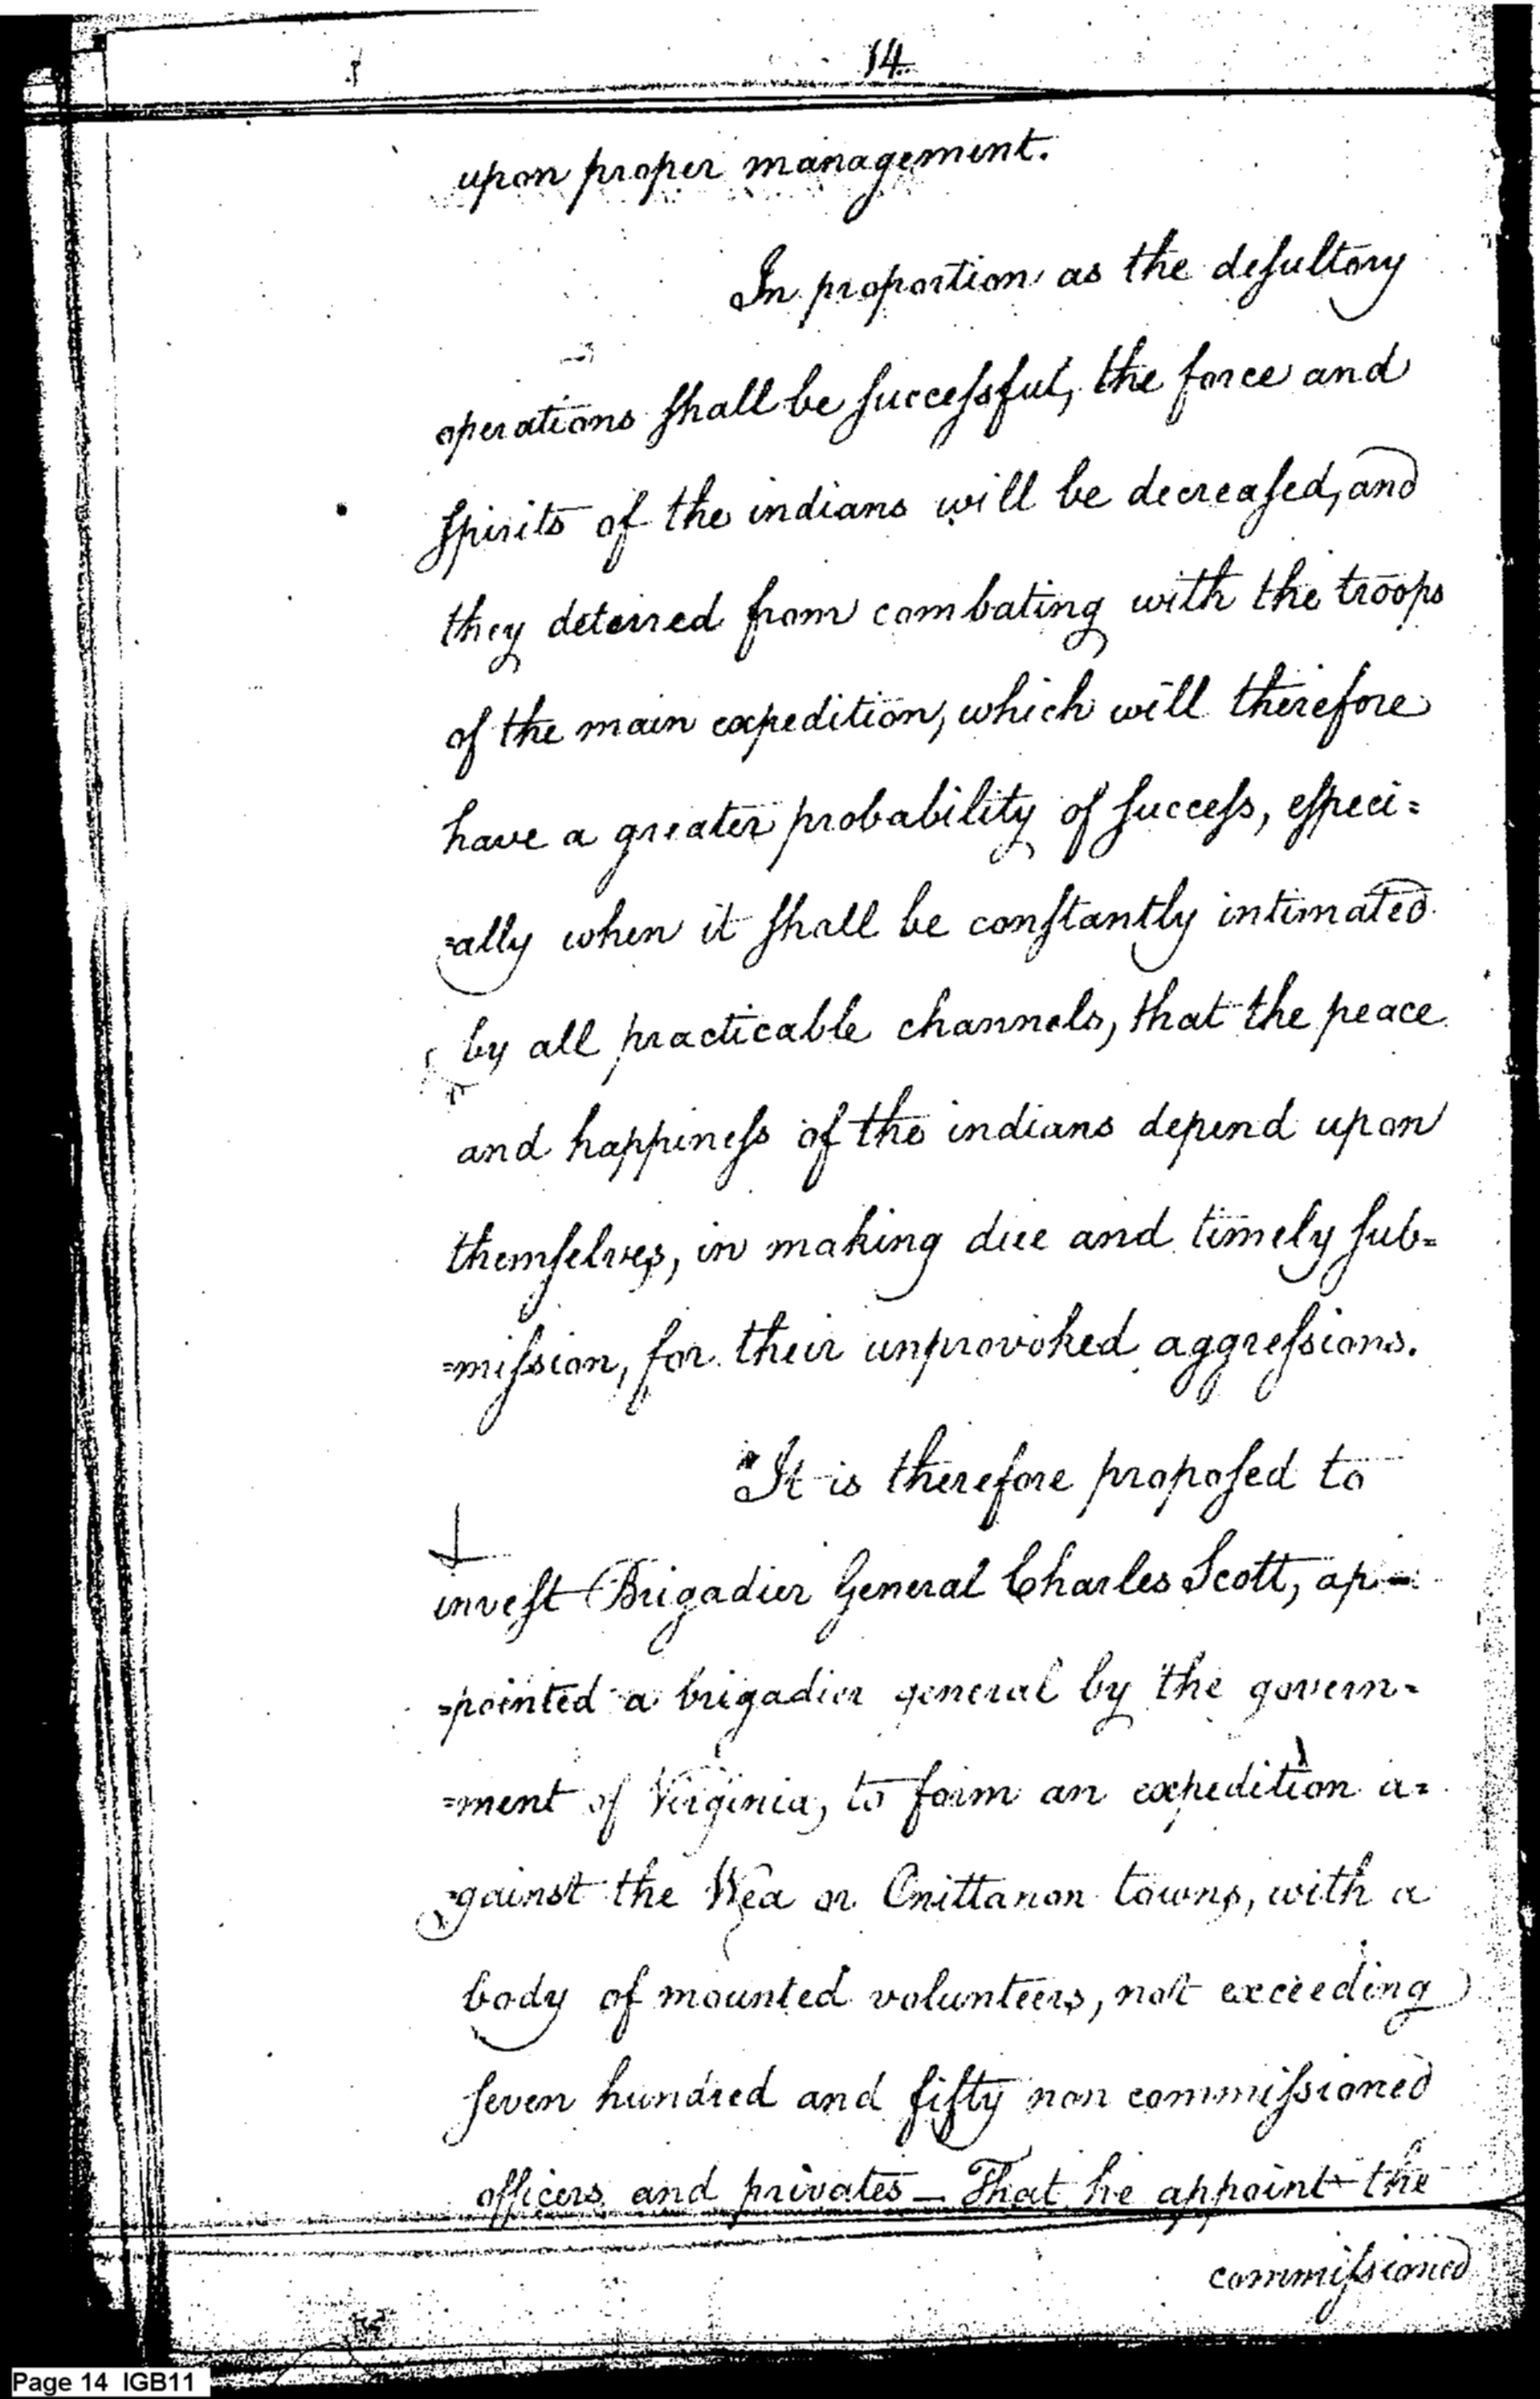 14
upon proper management.
In proportion as the desultory
operations shall be successful, the force and
spirits of the indians will be decreased, and
they deterred from combating with the troops
of the main expedition, which will therefore
have a greater probability of success, especi=
=ally when it shall be constantly intimated
by all practicable channels, that the peace
and happiness of the indians depend upon
themselves, in making due and timely sub=
=mission, for their unprovoked aggressions.
"It is therefore proposed to
invest Brigadier General Charles Scott, ap=
=pointed a brigadier general by the govern=
=ment of Virginia, to form an expedition a=
=gainst the Wea or Onittanon towns, with a
body of mounted volunteers, not exceeding
seven hundred and fifty non commissioned
officers and privates — That he appoint the
commissioned
Page 14 IGB11